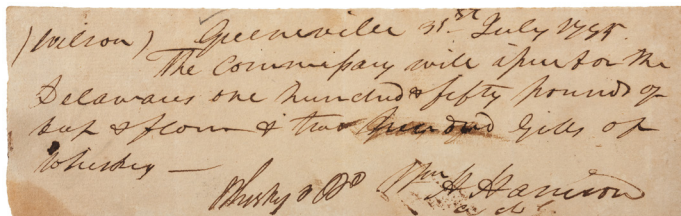 (Wilson) Greeneville 31st July 1795.
The Commissary will issue for the
Delawares one hundred & fifty pounds of
beef & flour & two hundred Gills of
Whiskey —
Whisky & Do Wm H. Harrison